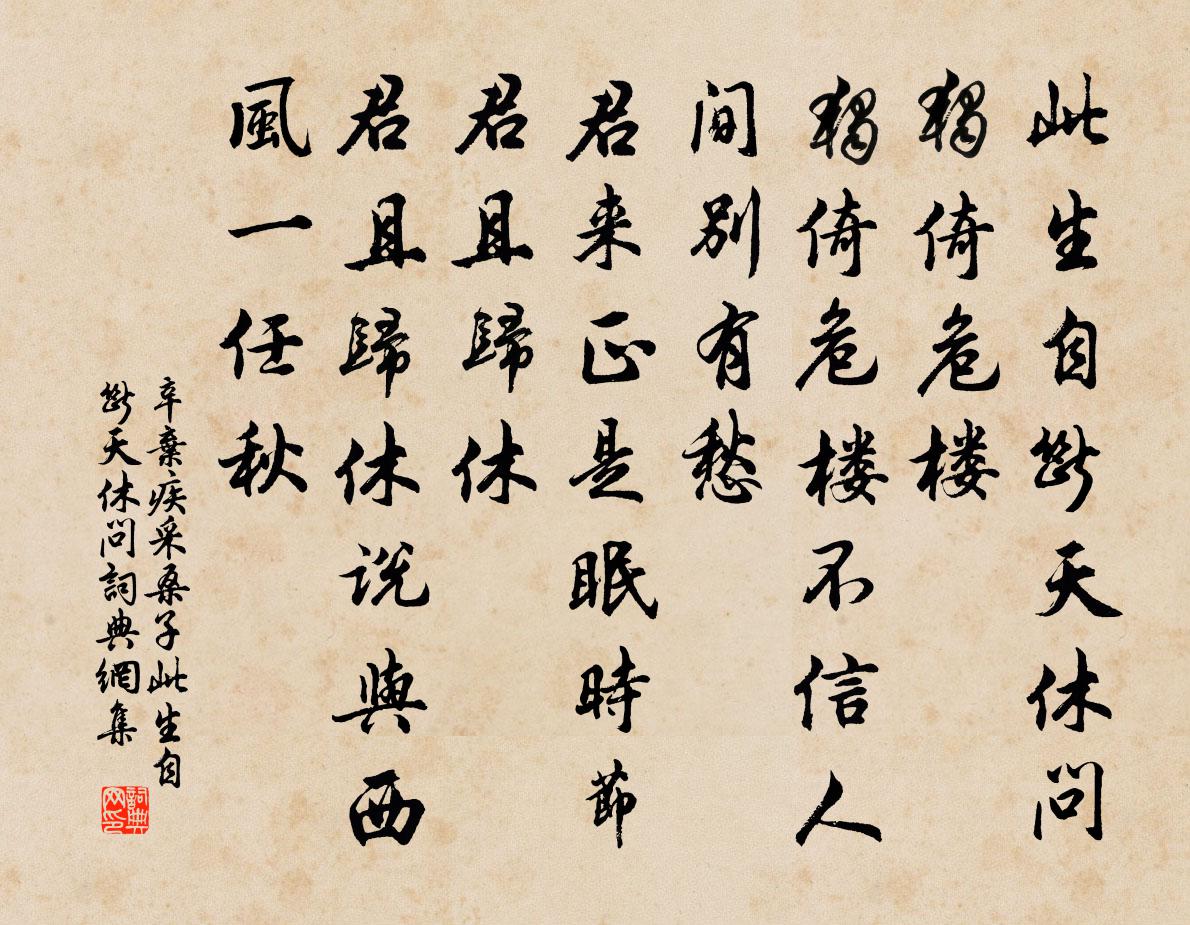 此生自斷天休問
獨倚危楼
獨倚危楼不信人
间别有愁
君来正是眠時節
君且歸休
君且歸休说與西
風一任秋
辛棄疾采桑子此生自
斷天休問詞典網集
詞典网印